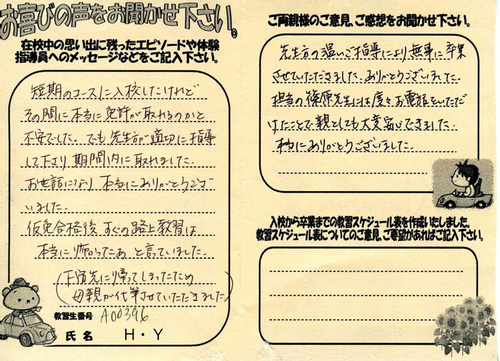 お喜びの声をお聞かせ下さい。
在校中の思い出に残ったエピソードや体験
指導員へのメッセージなどをご記入下さい。
短期のコースに入校したけれど
その間に本当に免許が取れるのかと
不安でした。でも先生が適切に指導
して下さり期間内に取れました。
お世話になり本当にありがとうござ
いました。
仮免合格後、すぐの路上教習は
本当に怖かったぁと言っていました。
下宿先に帰ってしまったため
母親が代筆させていただきました
教習生番号 A00396
氏名 H・Y
ご両親様のご意見、ご感想をお聞かせ下さい。
先生方の温いご指導により無事に卒業
させていただきました。ありがとうございました。
担当の篠原先生には度々お電話をいただ
けたことで親としても大変安心できました。
本当にありがとうございました。
入校から卒業までの教習スケジュール表を作成いたしました。
教習スケジュール表についてのご意見、ご要望があればご記入下さい。